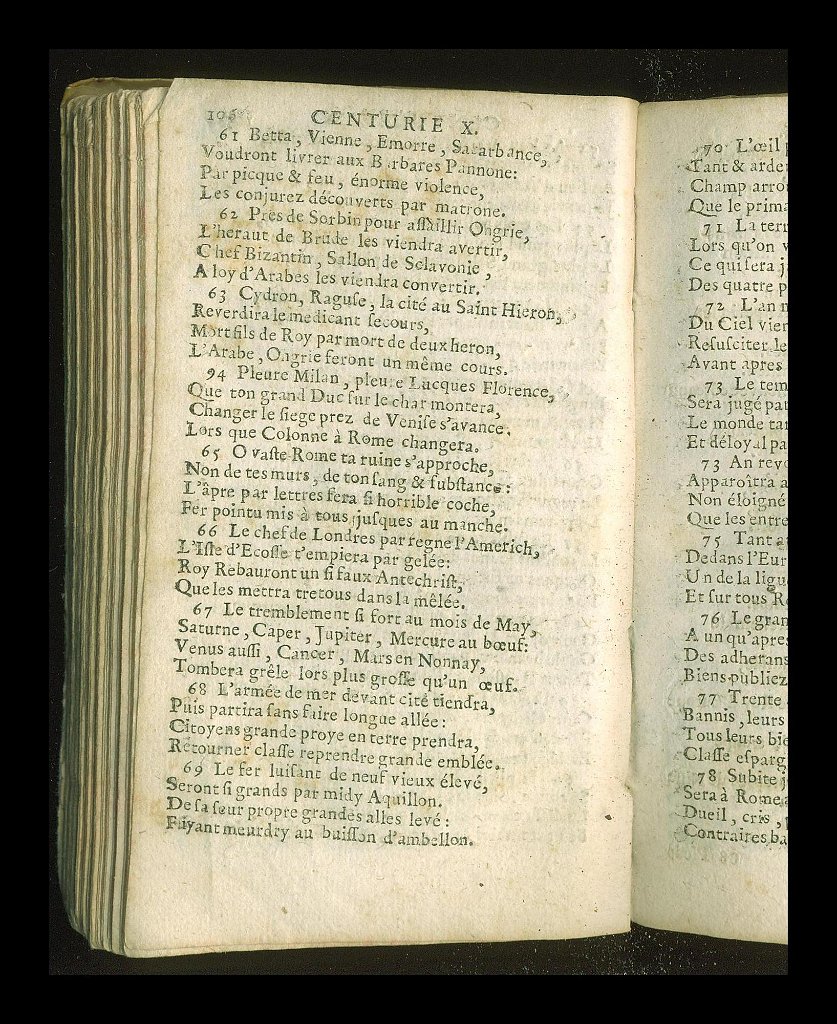 106
CENTURIE X.
61 Betta, Vienne, Emorre, Sacarbance,
Voudront livrer aux Barbares Pannone:
Par picque & feu, énorme violence,
Les conjurez découverts par matrone.
62 Prés de Sorbin pour aſſaillir Ongrie,
L'heraut de Brude les viendra avertir,
Chef Bizantin, Sallon de Sclavonie,
A loy d'Arabes les viendra convertir.
63 Cydron, Raguſe, la cité au Saint Hieron,
Reverdira le medicant ſecours,
Mort fils de Roy par mort de deux heron,
L'Arabe, Ongrie feront un même cours.
94 Pleure Milan, pleure Lucques Florence,
Que ton grand Duc ſur le char montera,
Changer le ſiege prez de Veniſe s'avance.
Lors que Colonne à Rome changera.
65 O vaſte Rome ta ruine s'approche,
Non de tes murs, de ton ſang & ſubſtance:
L'âpre par lettres fera ſi horrible coche,
Fer pointu mis à tous juſques au manche.
66 Le chef de Londres par regne l'Americh,
L'Iſle d'Ecoſſe t'empiera par gelée:
Roy Rebauront un ſi faux Antechriſt,
Que les mettra tretous dans la mêlée.
67 Le tremblement ſi fort au mois de May,
Saturne, Caper, Jupiter, Mercure au bœuf:
Venus auſſi, Cancer, Mars en Nonnay,
Tombera grêle lors plus groſſe qu'un œuf.
68 L'armée de mer devant cité tiendra,
Puis partira ſans faire longue allée:
Citoyens grande proye en terre prendra,
Retourner claſſe reprendre grande emblée.
69 Le fer luiſant de neuf vieux élevé,
Seront ſi grands par midy Aquillon.
De ſa ſeur propre grandes alles levé:
Fuyant meurdry au buiſſon d'ambellon.
70 L'œil
Tant & arde
Champ arro
Que le prima
71 La terr
Lors qu'on v
Ce qui ſera j
Des quatre p
72 L'an
Du Ciel vien
Reſuſciter le
Avant apres
73 Le tem
Sera jugé par
Le monde ta
Et déloyal pa
73 An revo
Apparoîtra a
Non éloigné
Que les entre
75 Tant a
Dedans l'Eur
Un de la ligu
Et ſur tous R
76 Le gran
A un qu'apres
Des adherans
Biens publiez
77 Trente
Bannis, leurs
Tous leurs bie
Claſſe eſparg
78 Subite j
Sera à Rome
Dueil, cris,
Contraires ba